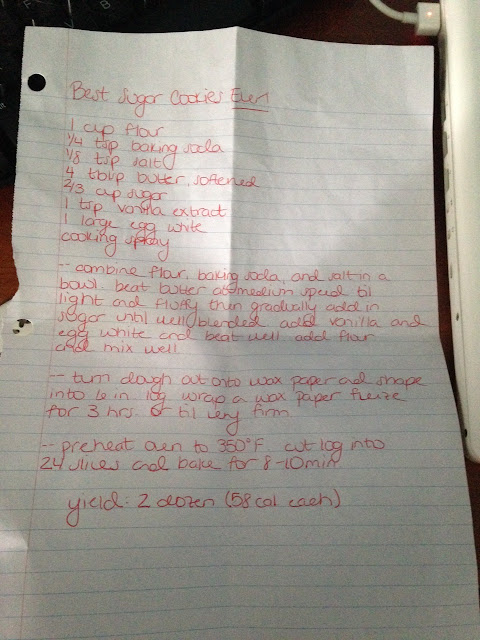 Best Sugar Cookies Ever!
1 cup flour
1/4 tsp baking soda
1/8 tsp salt
4 tblsp butter, softened
2/3 cup sugar
1 tsp vanilla extract
1 large egg white
cooking spray
-- combine flour, baking soda, and salt in a
bowl. beat butter at medium speed til
light and fluffy then gradually add in
sugar until well blended. add vanilla and
egg white and beat well add flour
and mix well
-- turn dough out onto wax paper and shape
into 6 in log. wrap a wax paper freeze
for 3 hrs. or til very firm
-- preheat oven to 350°F cut log into
24 slices and bake for 8-10 min.
yield: 2 dozen (58 cal each)